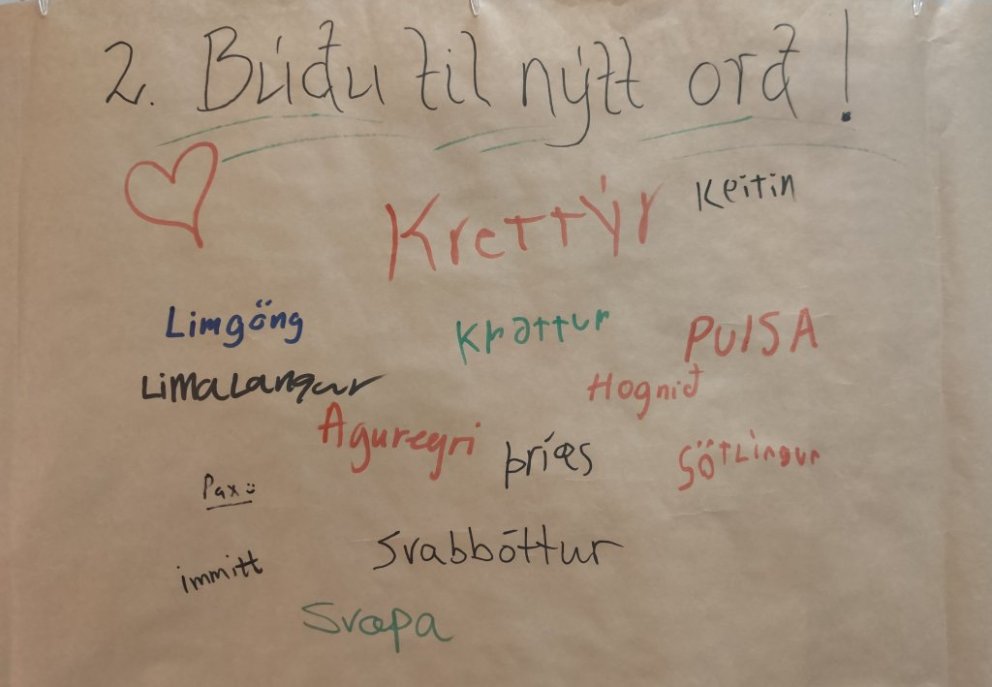 2. Búðu til nýtt orð!
Krettýr
Keitin
Limgöng
Krattur
PUlSA
LiMaLangur
Hognið
Aguregri
þríæs
SötLingur
Pax
Svabbóttur
immitt
Svapa